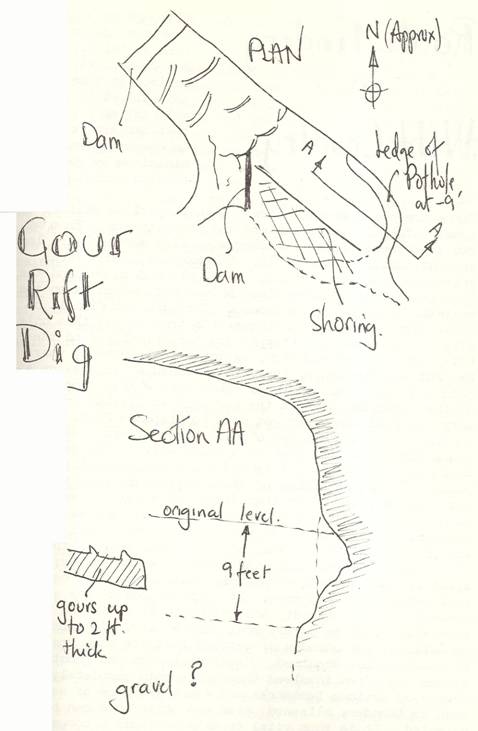 PLAN
N (Approx)
Dam
A
Ledge of
Pothole
at -9'
A
Dam
Shoring.
Gour
Rift
Dig
Section AA
original level.
9 feet
gours up
to 2 ft.
thick
gravel ?